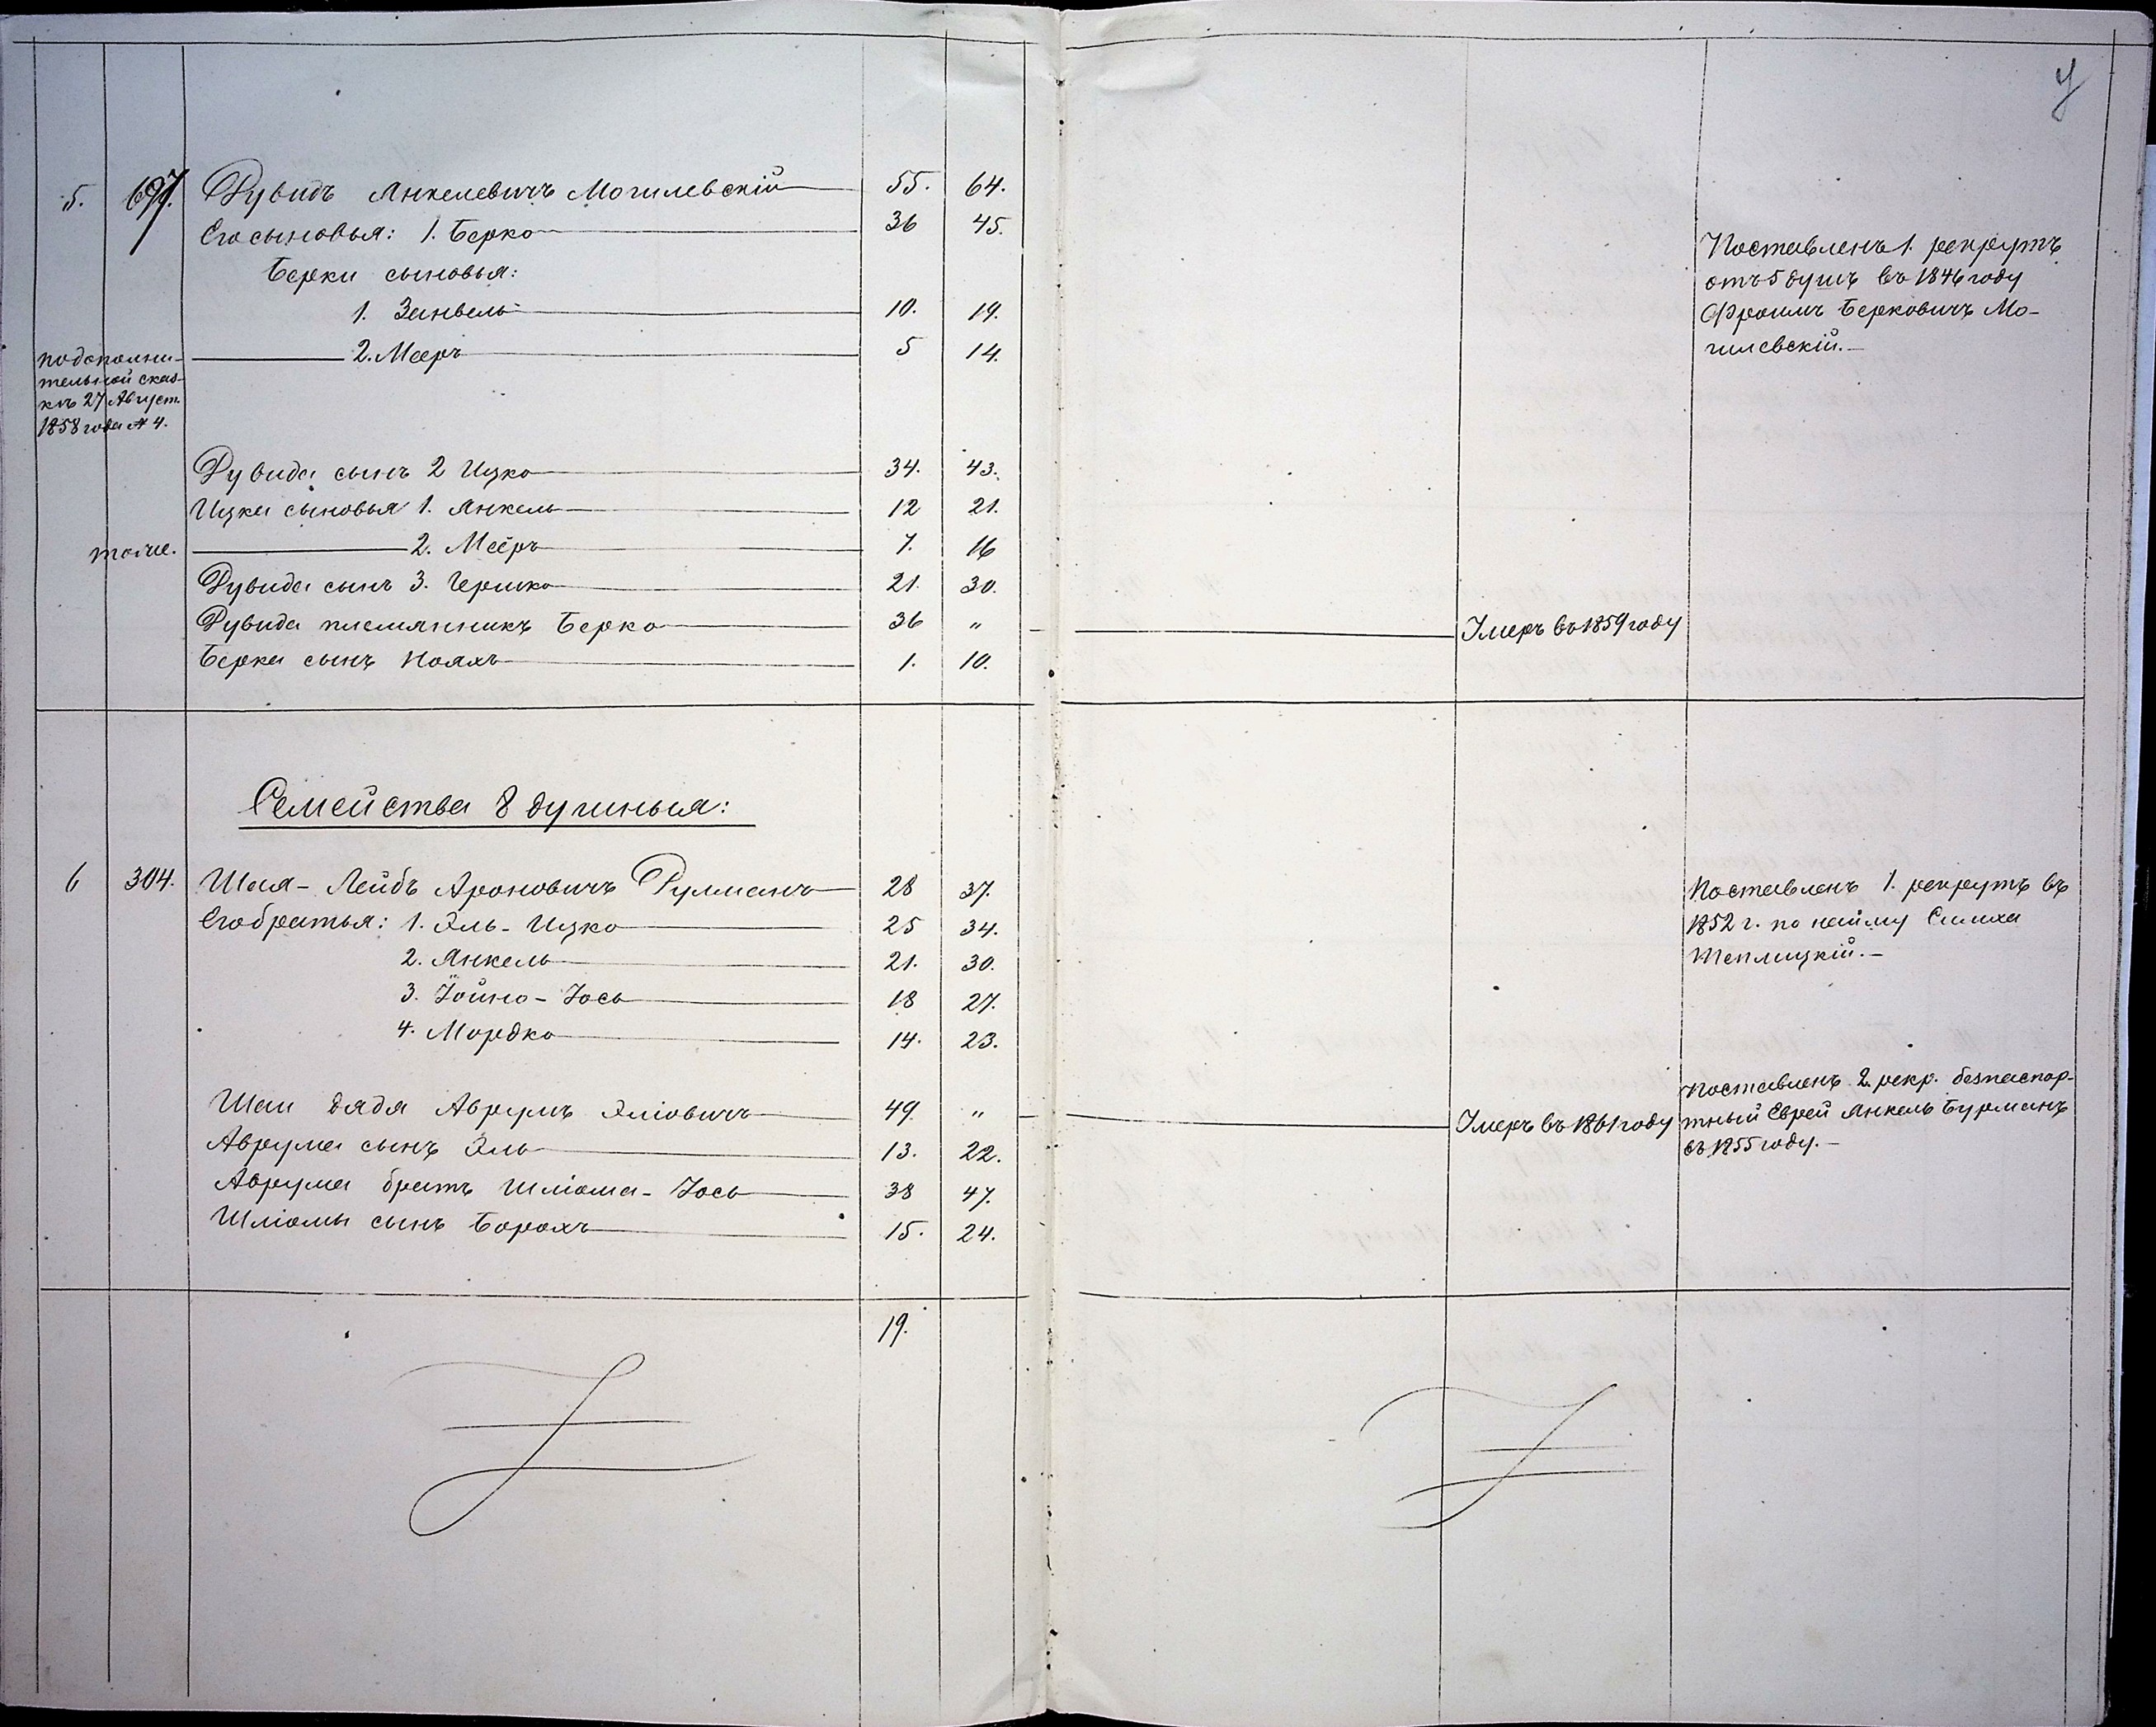 5. 697. Рувидъ Янкелевичъ Могилевскій 55. 64.
Его сыновья: 1. Берко 36 45.
Берки сыновья:
1. Занвель 10. 19.
2. Мееръ 5 14.
по дополни-
тельной сказ-
кѣ 27 Август.
1858 года № 4.
Рувида сынъ 2 Ицко 34. 43.
Ицки сыновья 1. Янкель 12 21.
тоже. 2. Мееръ 7. 16
Рувида сынъ 3. Гершко 21. 30.
Рувида племянникъ Берко 36 „ Умеръ въ 1859 году
Берки сынъ Нояхъ 1. 10.
Поставленъ 1. рекрутъ
отъ 5 душъ въ 1846 году
Фроимъ Берковичъ Мо-
гилевскій.
Семейства 8 душныя:
6 304. Шая-Лейбъ Ароновичъ Рулманъ 28 37.
Его братья: 1. Эль-Ицко 25 34.
2. Янкель 21. 30.
3. Іойно-Іось 18 27.
4. Мордко 14. 23.
Поставленъ 1. рекрутъ въ
1852 г. по найму Симха
Теплицкій.
Шаи дядя Аврумъ Эліовичъ 49. „ Умеръ въ 1861 году
Аврума сынъ Эль 13. 22.
Аврума братъ Шліома-Іось 38 47.
Шліомы сынъ Борохъ 15. 24.
Поставленъ 2. рекр. безпаспор-
тный Еврей Янкель Бурманъ
въ 1855 году.
19.